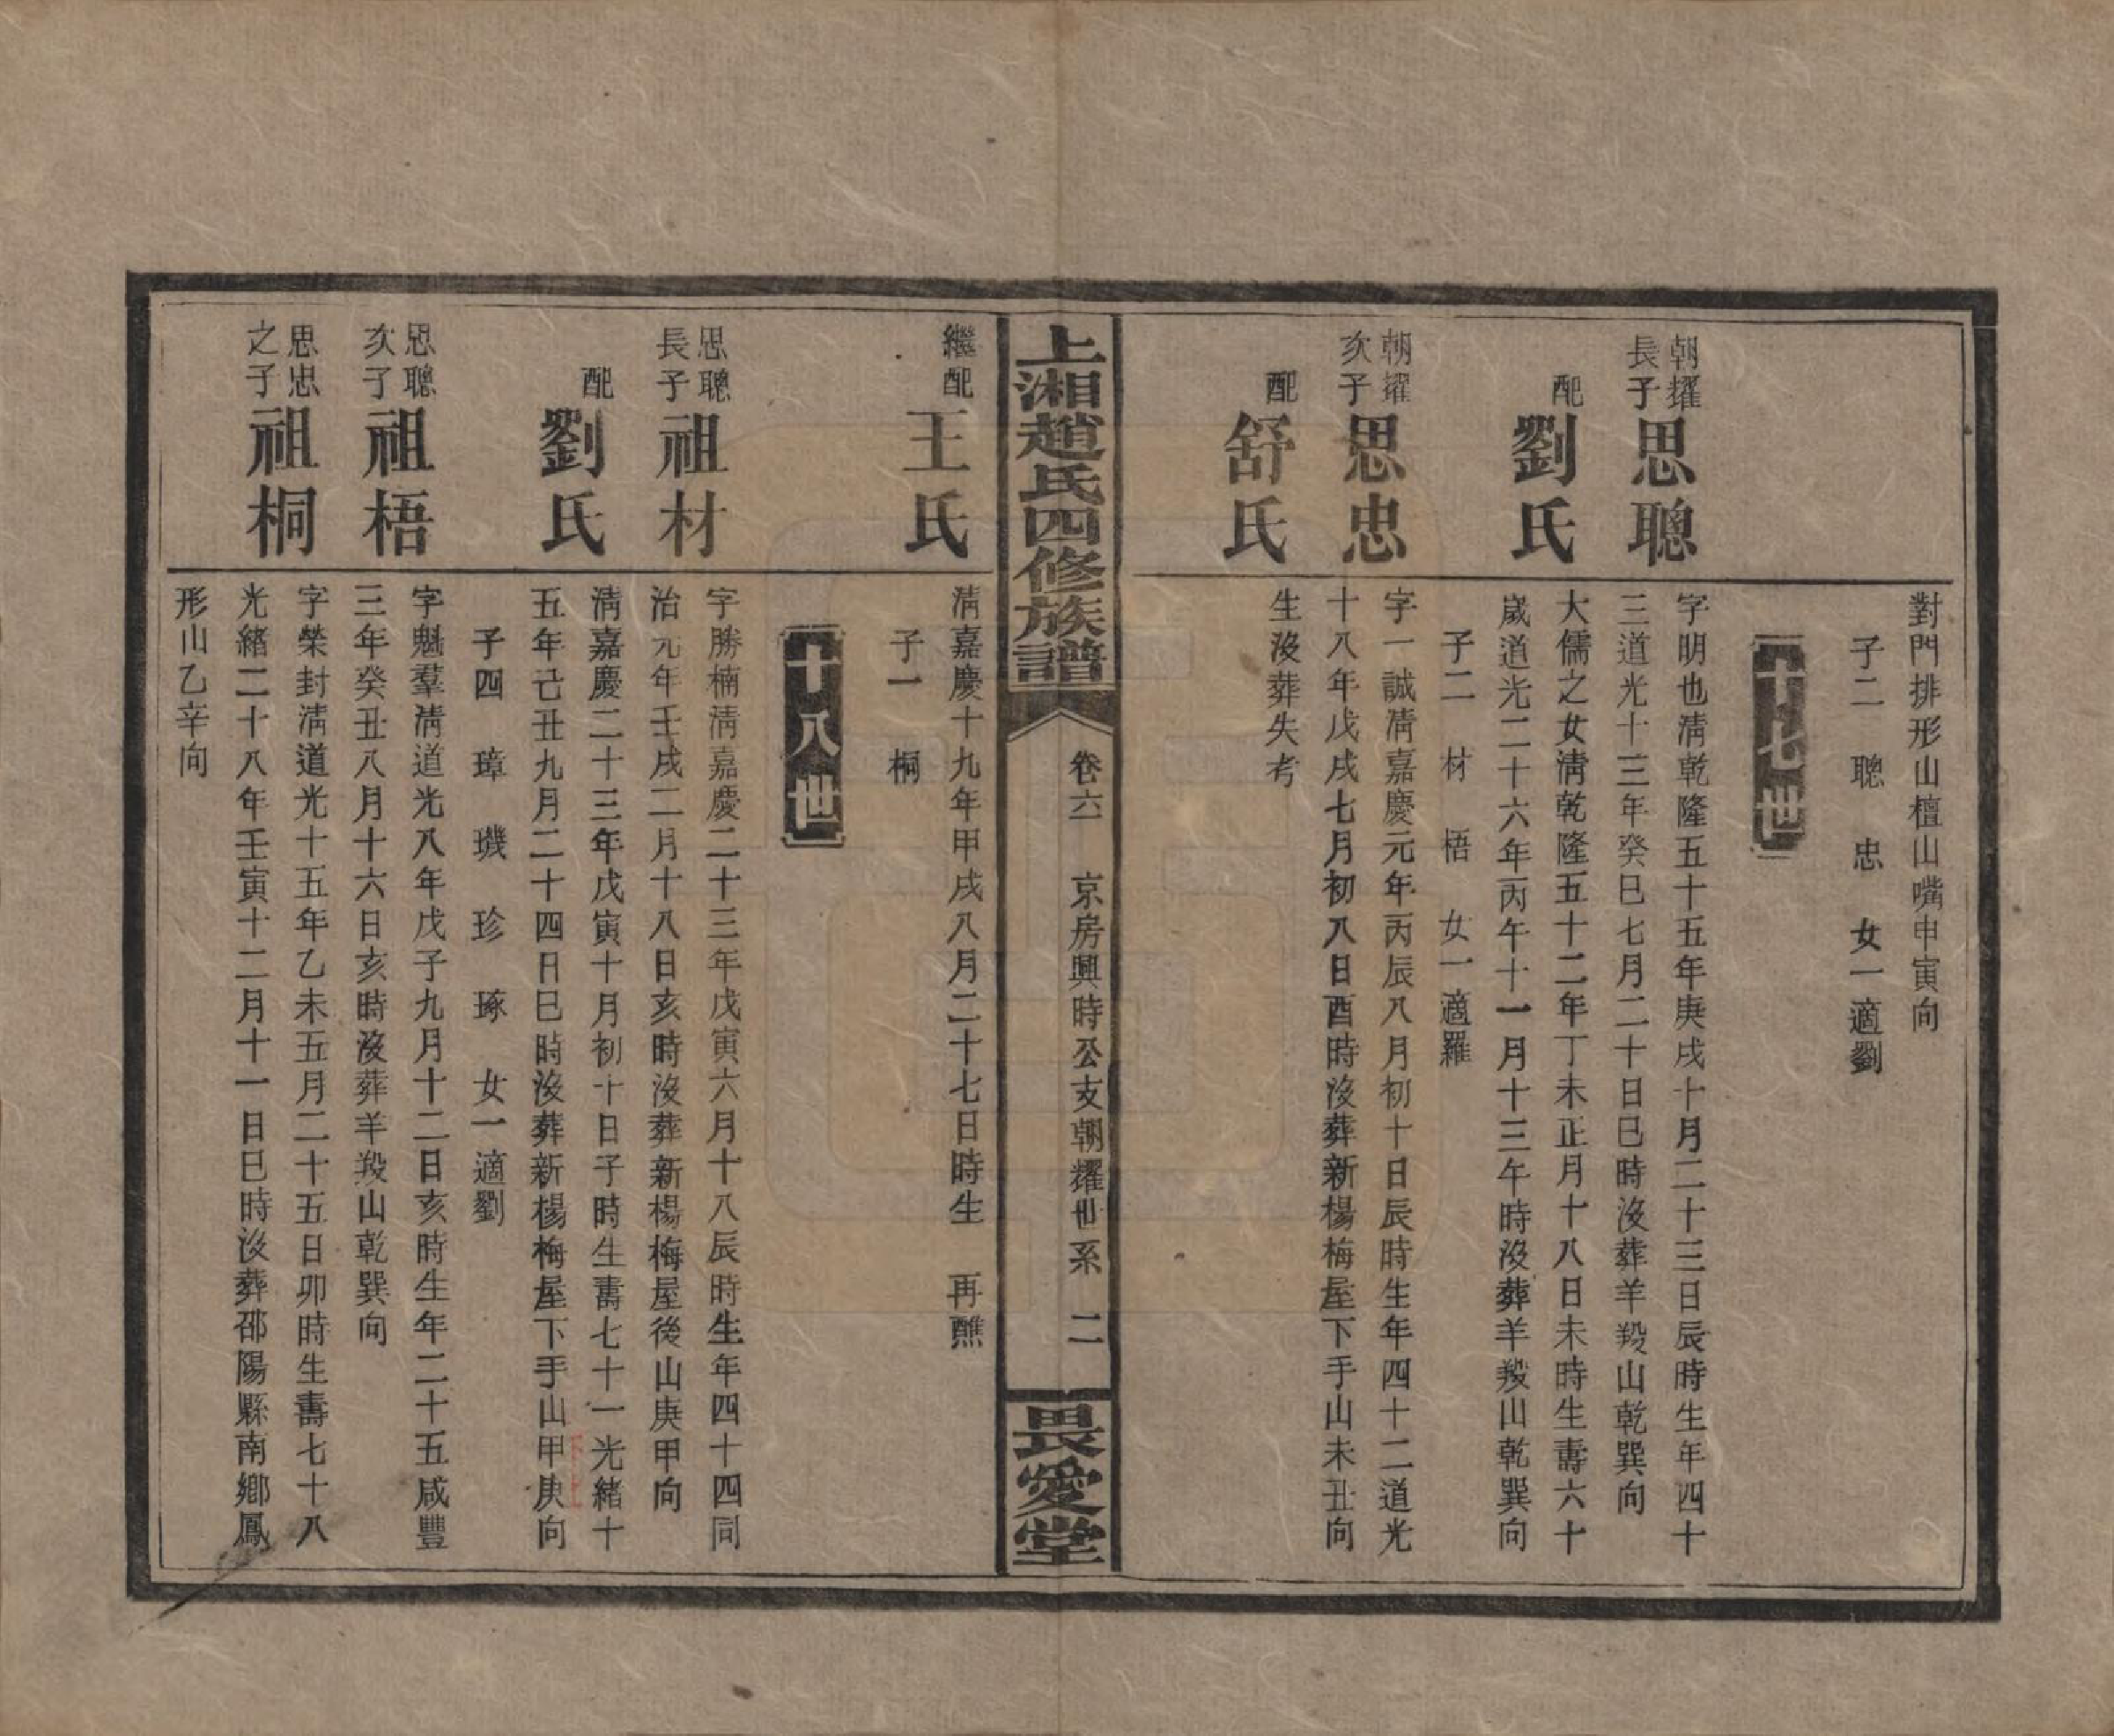 對門排形山檀山嘴申寅向
子二 聰 忠 女一適劉
十七世
朝擢長子 思聰
字明也清乾隆五十五年庚戌十月二十三日辰時生年四十
三道光十三年癸巳七月二十日巳時沒葬羊羖山乾巽向
配 劉氏
大儒之女清乾隆五十二年丁未正月十八日未時生壽六十
歲道光二十六年丙午十一月十三午時沒葬羊羖山乾巽向
子二 材 梧 女一適羅
朝擢次子 思忠
字一誠清嘉慶元年丙辰八月初十日辰時生年四十二道光
十八年戊戌七月初八日酉時沒葬新楊梅屋下手山未丑向
配 舒氏
生沒葬失考
上湘趙氏四修族譜
卷六 京房興時公支朝擢世系 二
畏愛堂
繼配 王氏
清嘉慶十九年甲戌八月二十七日時生 再醮
子一 桐
十八世
思聰長子 祖材
字勝楠清嘉慶二十三年戊寅六月十八辰時生年四十四同
治元年壬戌二月十八日亥時沒葬新楊梅屋後山庚甲向
配 劉氏
清嘉慶二十三年戊寅十月初十日子時生壽七十一光緒十
五年己丑九月二十四日巳時沒葬新楊梅屋下手山甲庚向
子四 璋 璣 珍 琢 女一適劉
思聰次子 祖梧
字魁羣清道光八年戊子九月十二日亥時生年二十五咸豐
三年癸丑八月十六日亥時沒葬羊羖山乾巽向
思忠之子 祖桐
字榮封清道光十五年乙未五月二十五日卯時生壽七十八
光緒二十八年壬寅十二月十一日巳時沒葬邵陽縣南鄉鳳
形山乙辛向